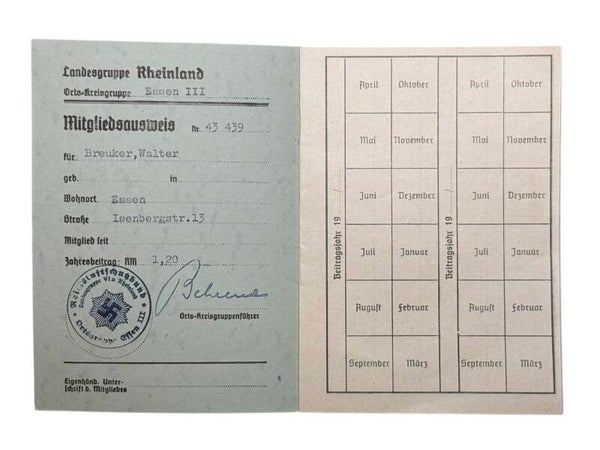 Landesgruppe Rheinland
Orts-Kreisgruppe Essen III
Mitgliedsausweis Nr. 43 439
für Breuker,Walter
geb. in
Wohnort Essen
Straße Isenbergstr.13
Mitglied seit
Jahresbeitrag: RM 1,20
Reichsluftschutzbund
Landesgruppe VIa Rheinland
Ortsgruppe Essen III
Behrend
Orts-Kreisgruppenführer
Eigenhänd. Unter-
schrift d. Mitgliedes
Beitragsjahr 19 /
April Oktober
Mai November
Juni Dezember
Juli Januar
August Februar
September März
Beitragsjahr 19 /
April Oktober
Mai November
Juni Dezember
Juli Januar
August Februar
September März